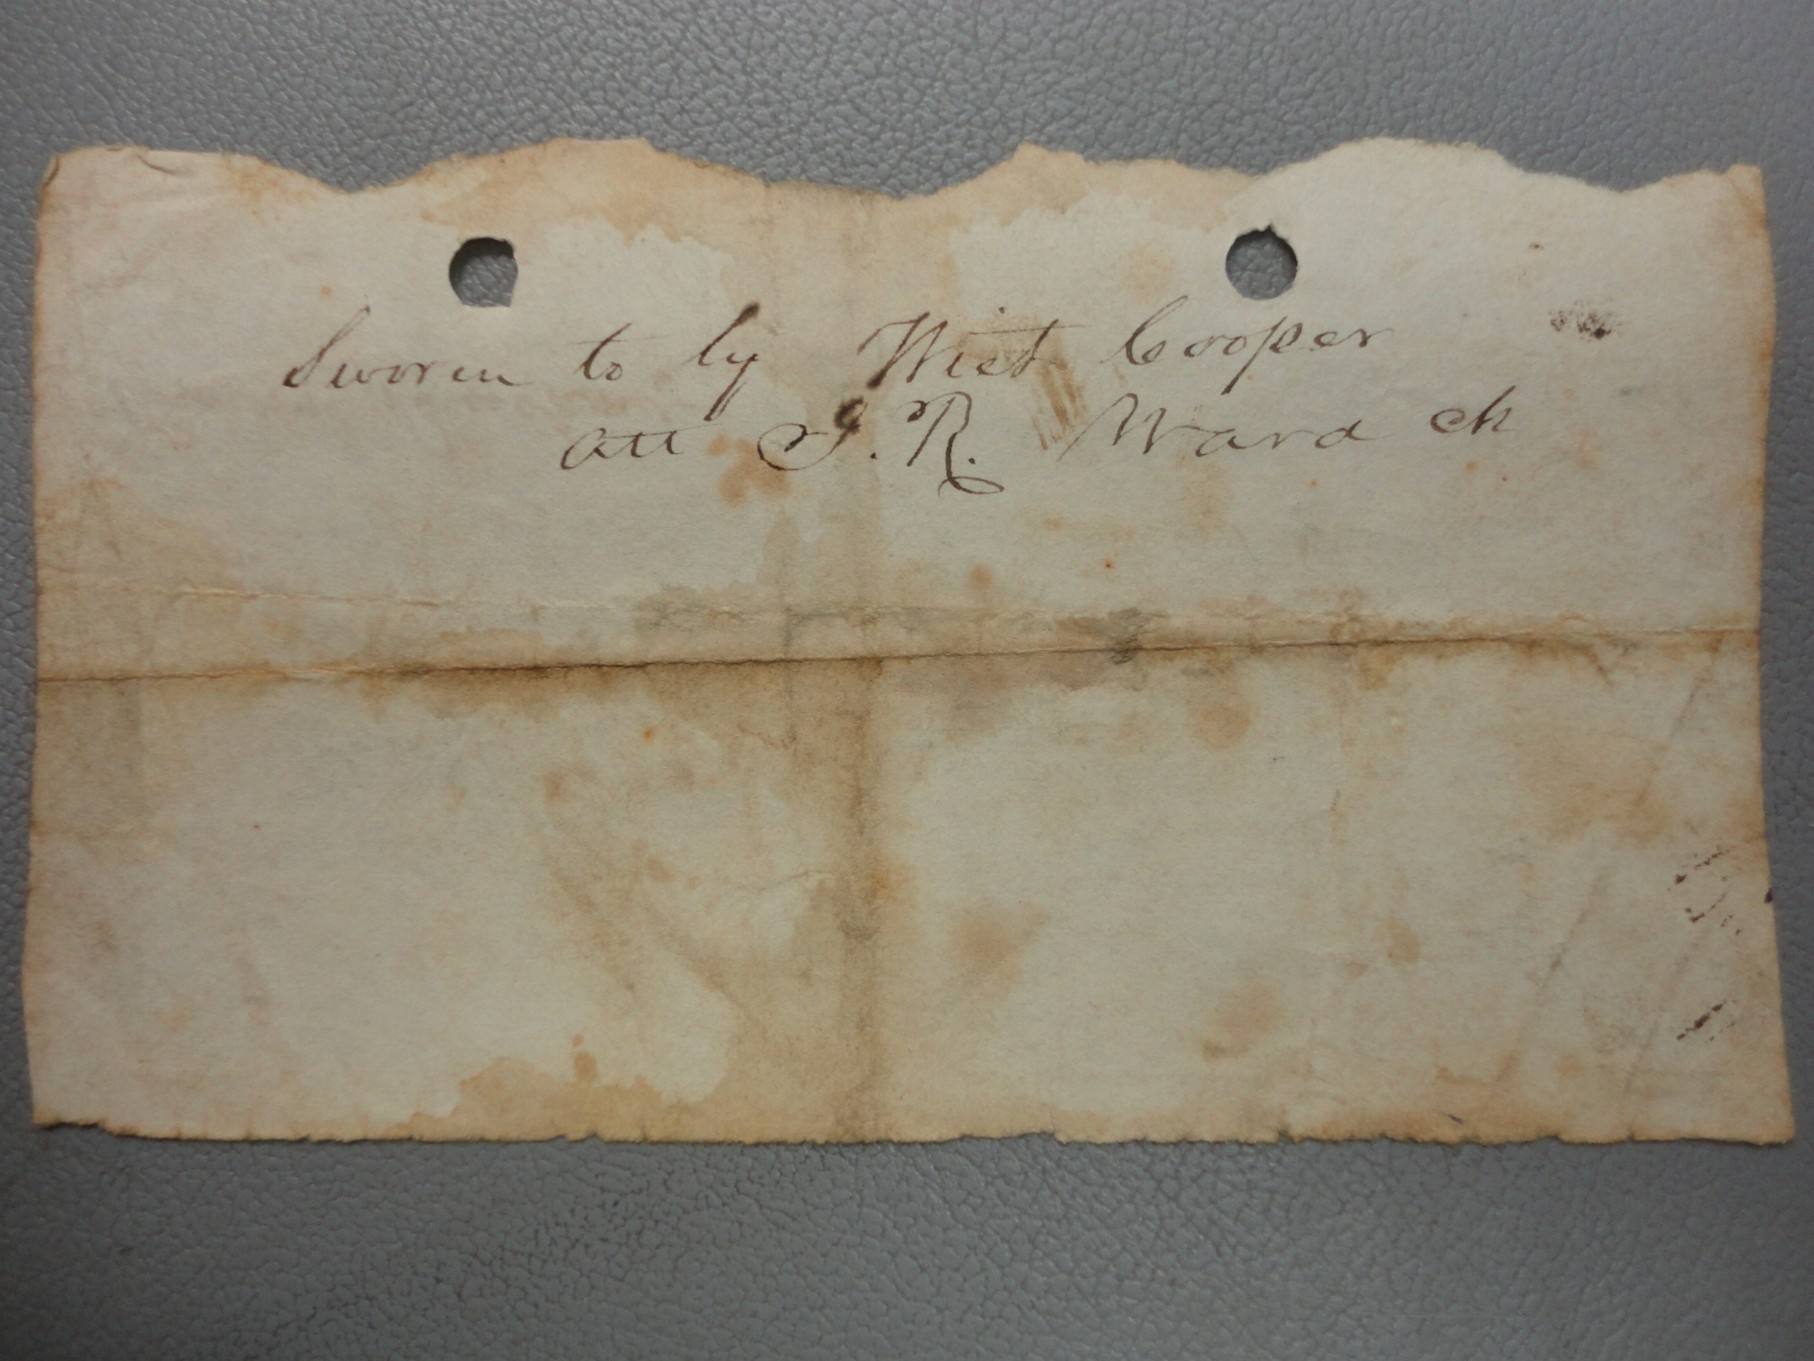 Sworn to by Wiet Cooper
att J. R. Ward ck